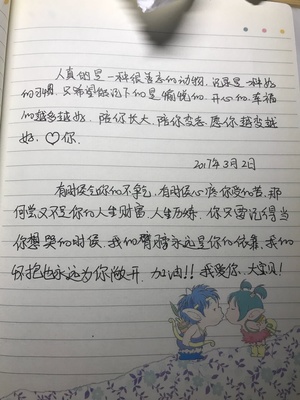 人真的是一种很善忘的动物，记录是一种好
的习惯，又希望能记下的是愉悦的、开心的、幸福
的越多越好，陪你长大，陪你变老，愿你越变越
好，♡你.
2017年3月2日
有时候气你的不争气，有时候心疼你受的苦，那
何尝又不是你的人生财富，人生历练，你只要记得当
你想哭的时候，我的臂膀永远是你的依靠，我的
怀抱也永远为你敞开，加油!!我爱你，大宝贝!